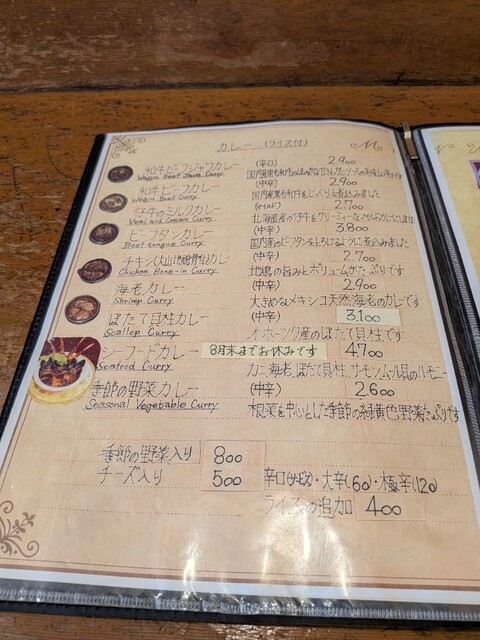 カレー (ライス付)
和牛ビーフジャワカレー (辛口) 2.900
Wagyu Beef Java Curry
和牛ビーフカレー (中辛) 2.900
Wagyu Beef Curry 国内産黒毛和牛をじっくり煮込みました
仔牛のミルクカレー (マイルド) 2.700
Veal and Cream Curry
ビーフタンカレー (中辛) 3.800
Beef tongue Curry 国内産のビーフタンをとろけるように煮込みました
チキン(大山地鶏骨付)カレー (中辛) 2.700
Chicken Bone-in Curry 地鶏の旨みとボリュームがたっぷりです
海老カレー (中辛) 2.900
Shrimp Curry 大きめなメキシコ天然海老のカレーです
ほたて貝柱カレー (中辛) 3.100
Scallop Curry オホーツク産のほたて貝柱です
シーフードカレー 8月末までお休みです 4.700
Seafood Curry カニ、海老、ほたて貝柱、サーモン、ムール貝のハーモニー
季節の野菜カレー (中辛) 2.600
Seasonal Vegetable Curry 根菜を中心とした季節の緑黄色野菜たっぷりです
季節の野菜入り 800
チーズ入り 500 辛口(サービス)・大辛(60)・極辛(120)
ライスの追加 400